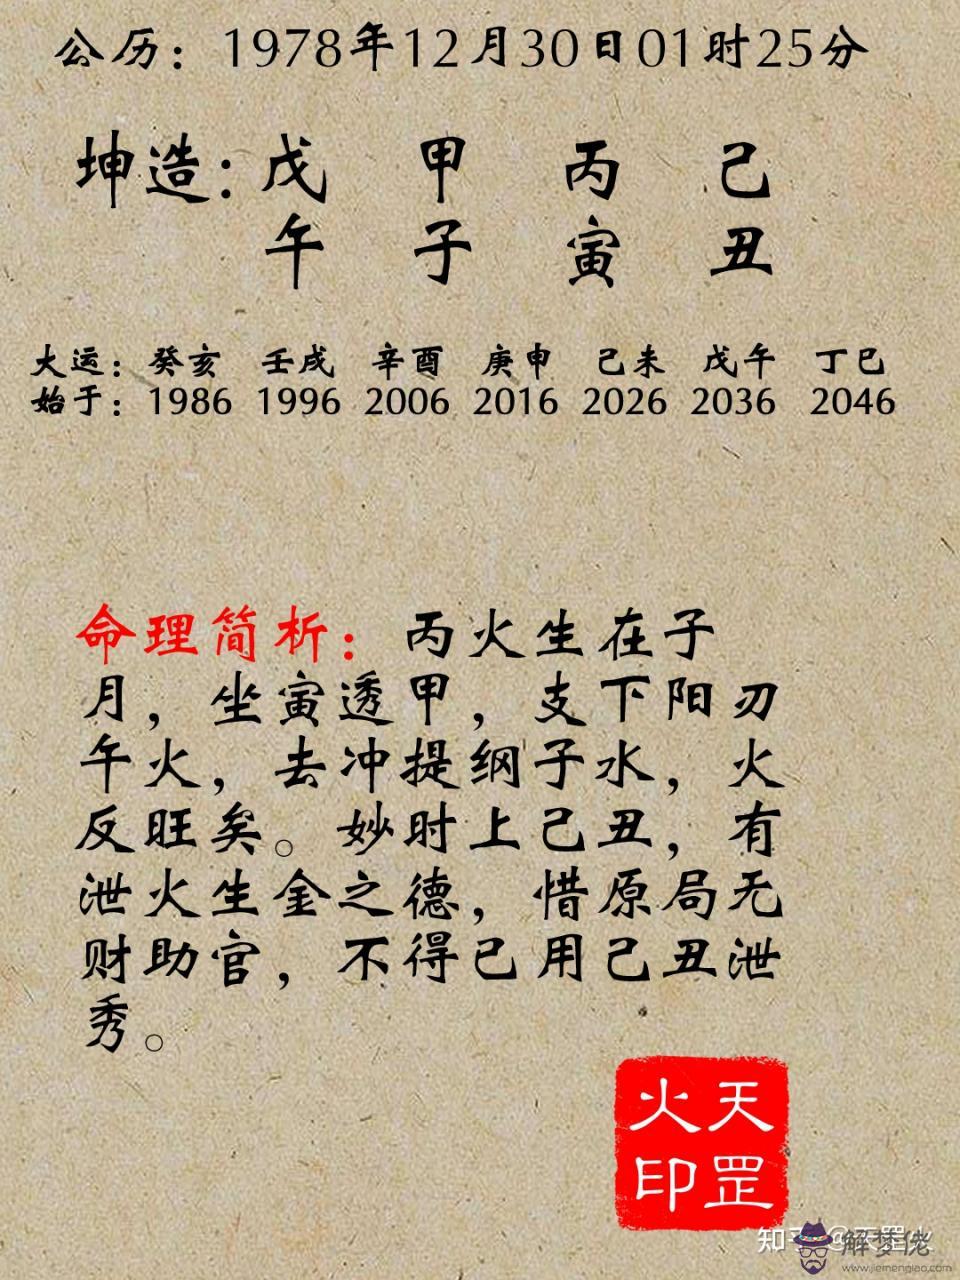 公历：1978年12月30日01时25分
坤造：戊 甲 丙 己
午 子 寅 丑
大运：癸亥 壬戌 辛酉 庚申 己未 戊午 丁巳
始于：1986 1996 2006 2016 2026 2036 2046
命理简析：丙火生在子
月，坐寅透甲，支下阳刃
午火，去冲提纲子水，火
反旺矣。妙时上己丑，有
泄火生金之德，惜原局无
财助官，不得已用己丑泄
秀。
天罡
火印
知乎 @天罡火
解梦佬
www.jiemengjiao.com